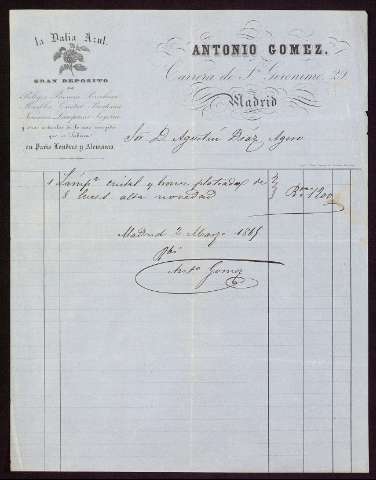 la Dalia Azul.
GRAN DEPOSITO
DE
Relojes Bronces
Muebles Cristal
Lamparas
y otros articulos de lo mas escogido
que se fabrica
en Paris Londres y Alemania.
ANTONIO GOMEZ.
Carrera de Sn. Geronimo, 29
Madrid
Sor D. Agustin Diaz Agero
1 Lampa. cristal y bronce plateada de
8 luces alta novedad
Rvn 1200
Madrid 2 Marzo 1865
Anto Gomez